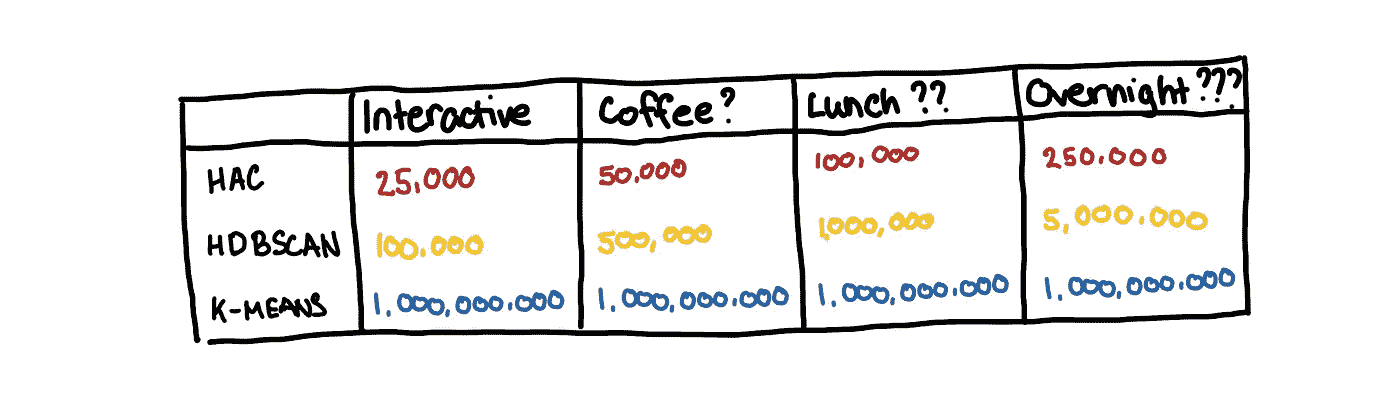 Interactive Coffee? Lunch ?? Overnight ???
HAC 25,000 50,000 100,000 250,000
HDBSCAN 100,000 500,000 1,000,000 5,000,000
K-MEANS 1,000,000,000 1,000,000,000 1,000,000,000 1,000,000,000